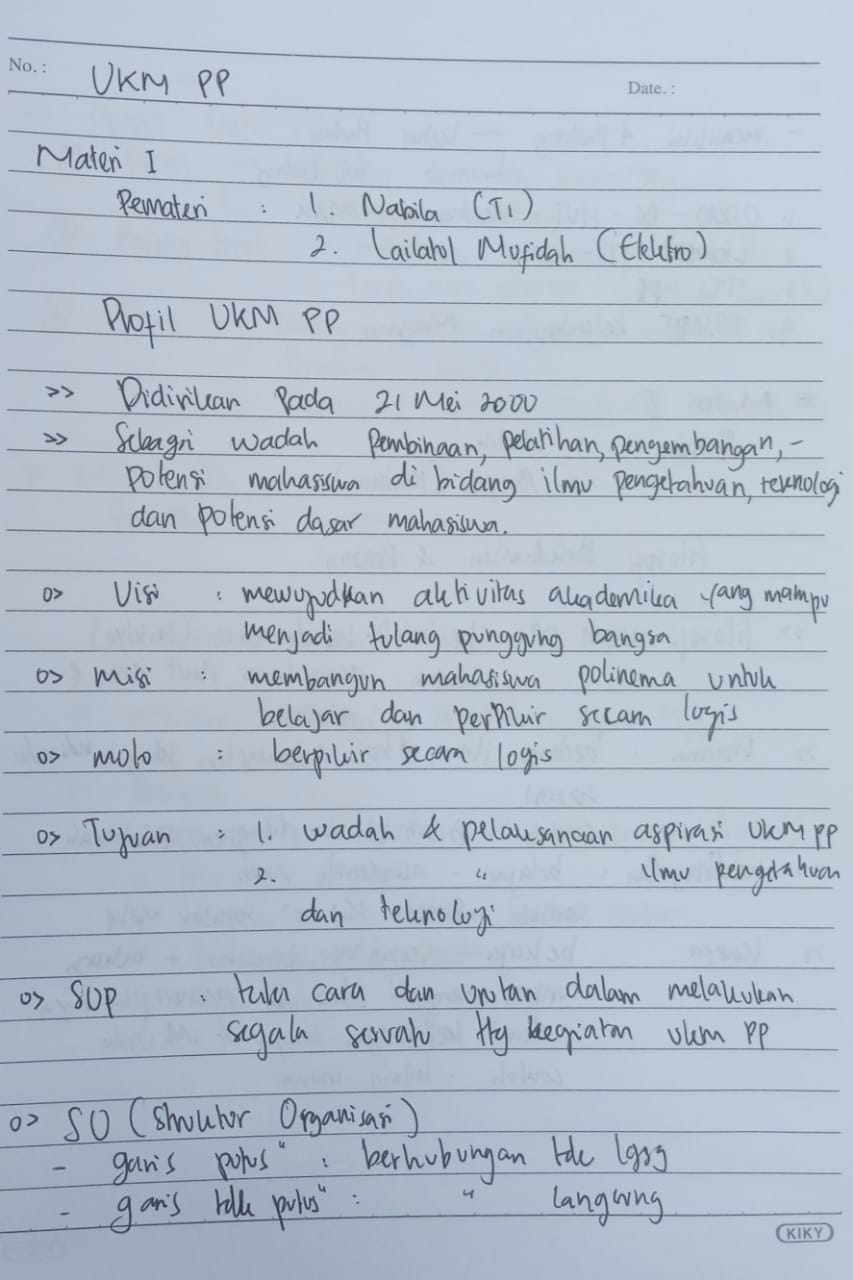 No. :
UKM PP
Date. :
Materi I
Pemateri : 1. Nabila (TI)
2. Lailatul Mufidah (Elektro)
Profil UKM PP
>> Didirikan Pada 21 Mei 2000
>> Sebagai wadah Pembinaan, pelatihan, pengembangan, -
potensi mahasiswa di bidang ilmu pengetahuan, teknologi
dan potensi dasar mahasiswa.
o> Visi : mewujudkan aktivitas akademika yang mampu
menjadi tulang punggung bangsa
o> Misi : membangun mahasiswa polinema untuk
belajar dan perpikir secara logis
o> moto : berpikir secara logis
o> Tujuan : 1. wadah & pelaksanaan aspirasi UKM PP
2. " ilmu pengetahuan
dan teknologi
o> SOP : tata cara dan urutan dalam melakukan
segala ttg kegiatan ukm PP
o> SO (Struktur Organisasi)
- garis putus" : berhubungan tdk lgsg
- garis tdk putus" : " langsung
KIKY